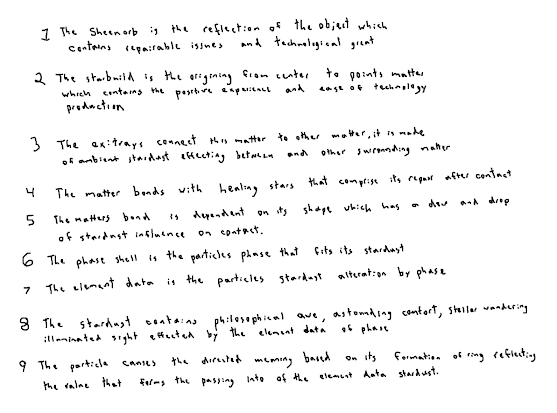 1 The Sheenorb is the reflection of the object which
contains repairable issues and technological great
2 The starbuild is the origining from center to points matter
which contains the positive experience and ease of technology
production
3 The exitrays connect this matter to other matter, it is made
of ambient stardust effecting between and other surrounding matter
4 The matter bonds with healing stars that comprise its repair after contact
5 The matters bond is dependent on its shape which has a dew and drop
of stardust influence on contact.
6 The phase shell is the particles phase that fits its stardust
7 The element data is the particles stardust alteration by phase
8 The stardust contains philosophical awe, astounding comfort, stellar wandering
illuminated sight effected by the element data of phase
9 The particle causes the directed meaning based on its formation of ring reflecting
the value that forms the passing into of the element data stardust.